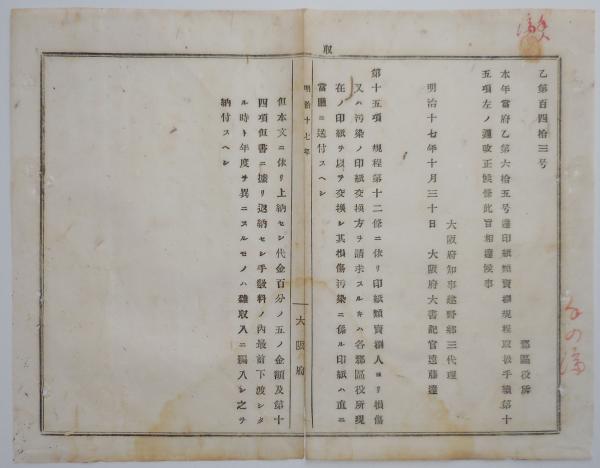 乙第百四拾三号
郡區役所
本年當府乙第六拾五号達印紙類賣捌規程取扱手續第十
五項左ノ通改正候條此旨相達候事
大阪府知事建野郷三代理
明治十七年十月三十日 大阪府大書記官遠藤達
第十五項 規程第十二條ニ依リ印紙類賣捌人ヨリ損傷
又ハ汚染ノ印紙交換方ヲ請求スルキハ各郡區役所現
在ノ印紙ヲ以テ交換シ其損傷汚染ニ係ル印紙ハ直ニ
當廳ニ送付スヘシ
明治十七年
大阪府
但本文ニ依リ上納セシ代金百分ノ五ノ金額及第十
四項但書ニ據リ返納セシ手數料ノ內最前下渡シタ
ル時ト年度ヲ異ニスルモノハ雜収入ニ編入シ之ヲ
納付スヘシ